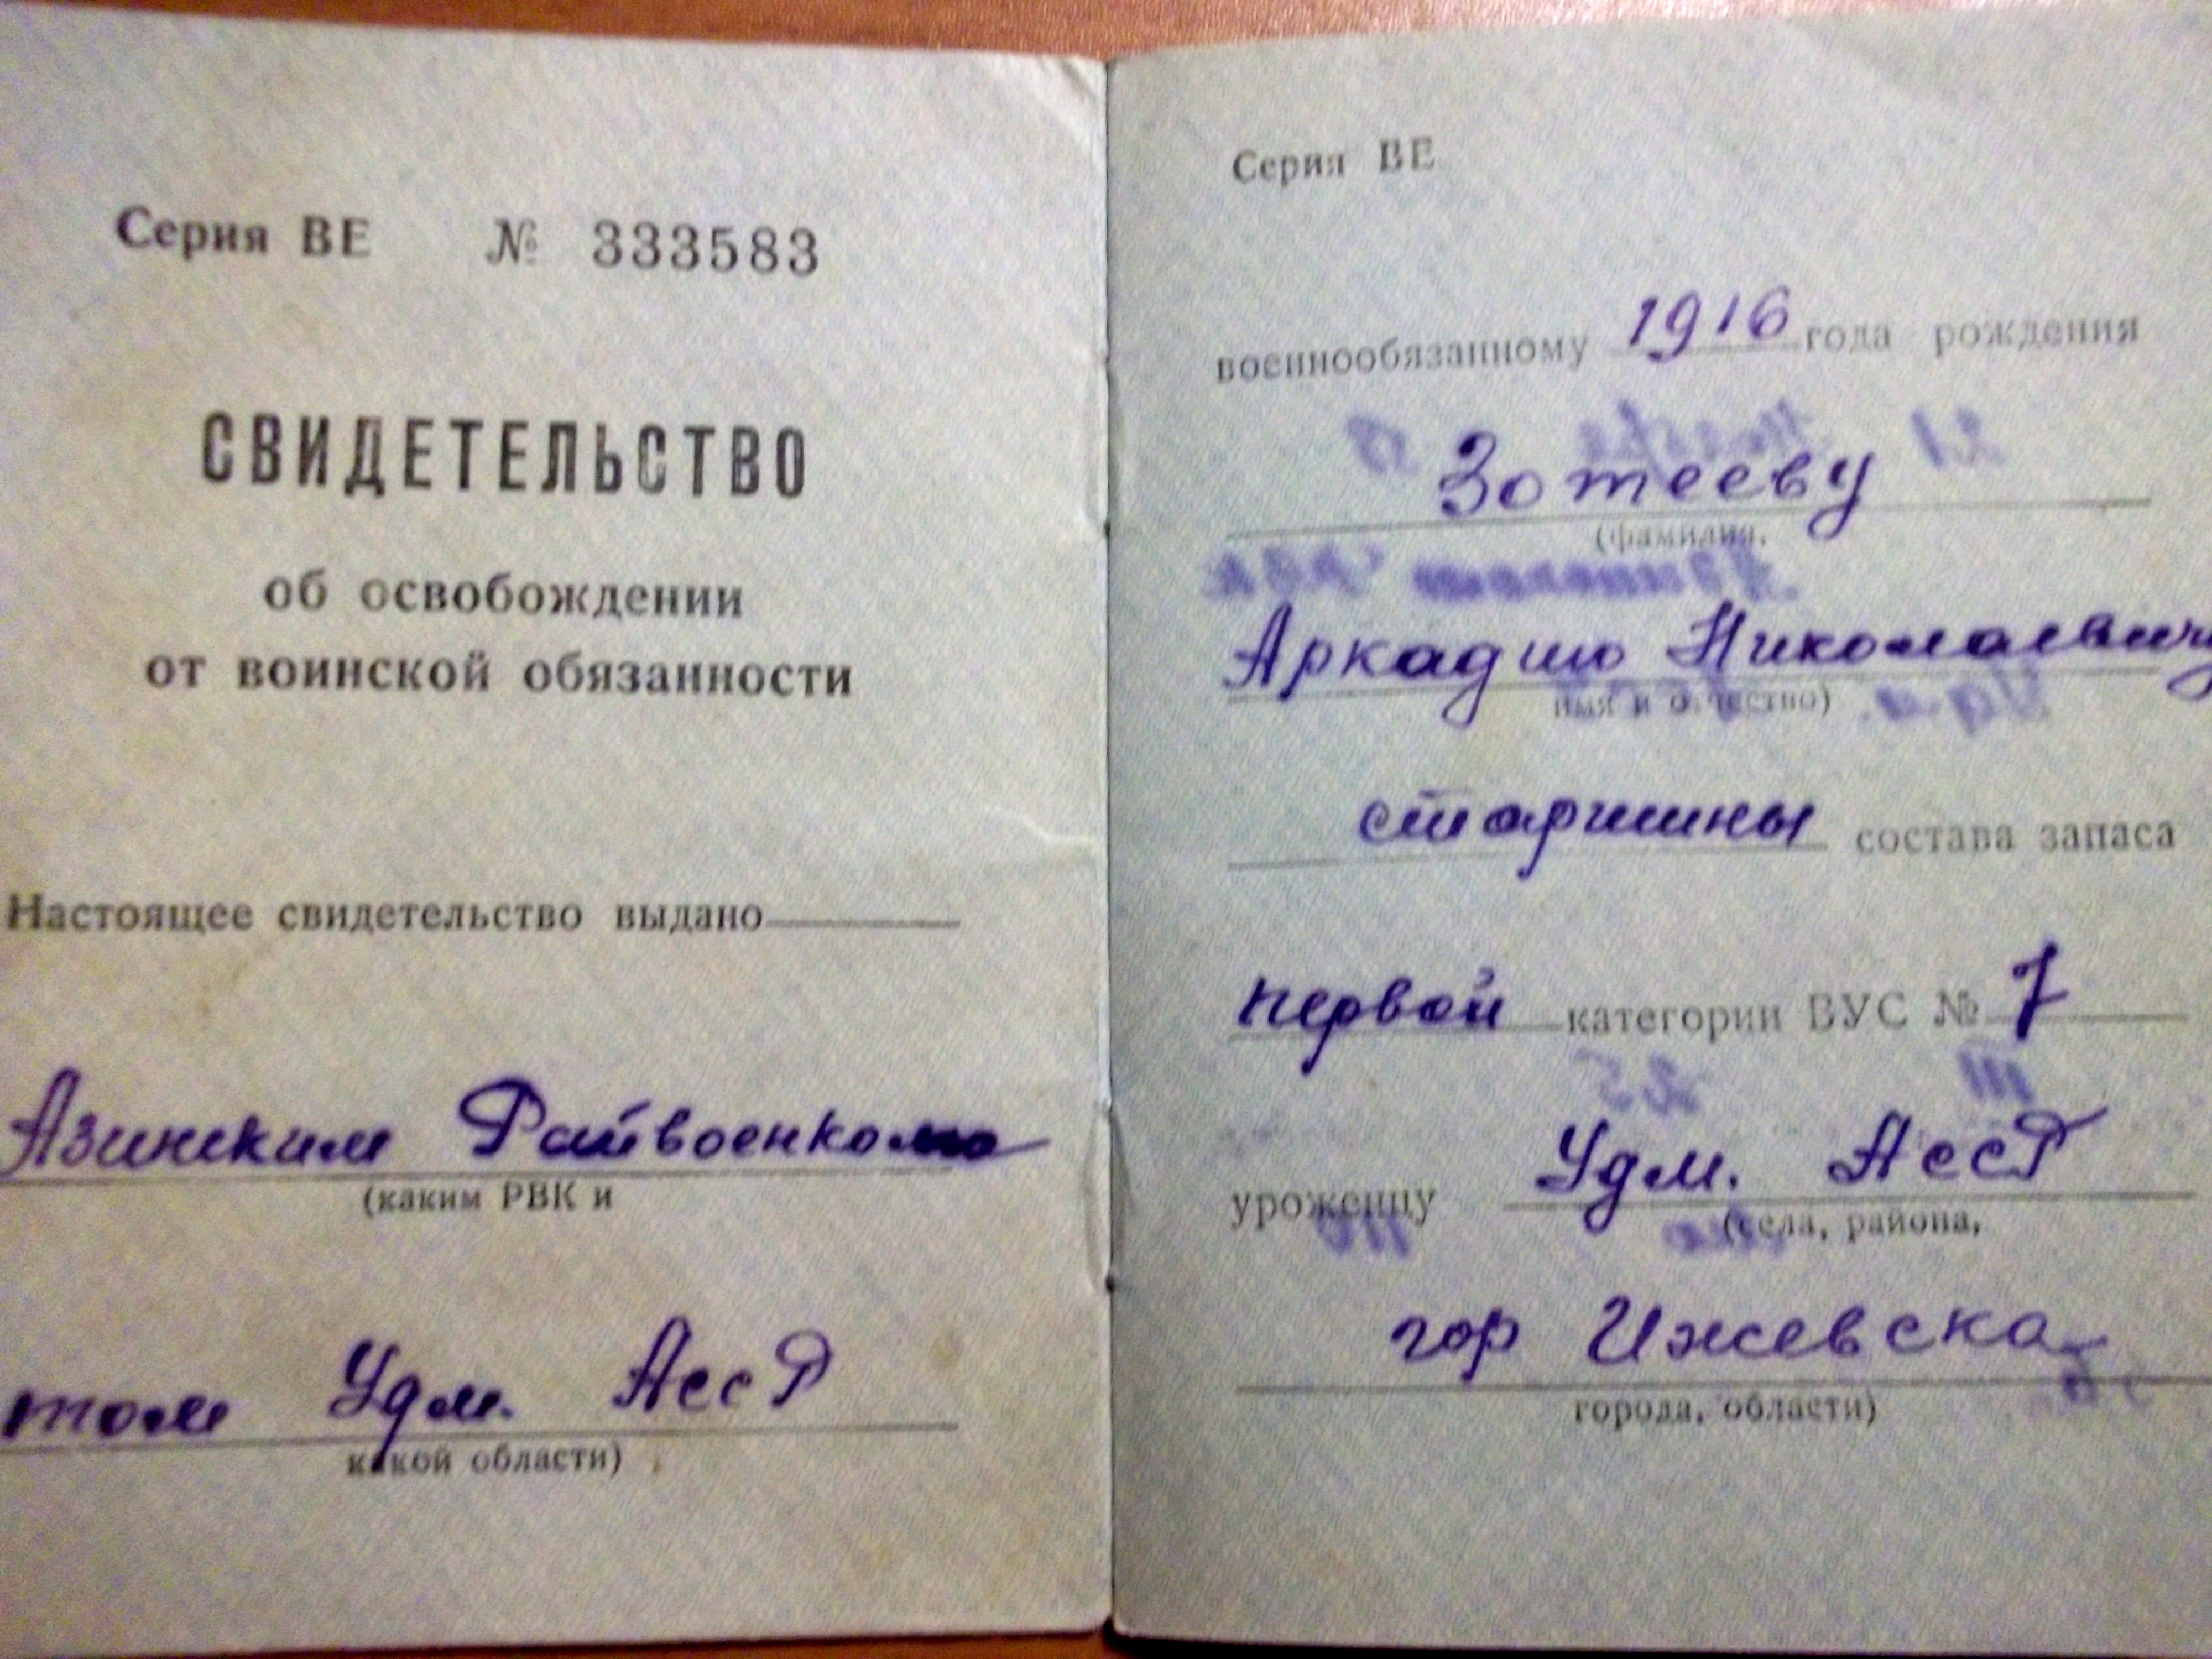 Серия ВЕ № 333583
СВИДЕТЕЛЬСТВО
об освобождении
от воинской обязанности
Настоящее свидетельство выдано
Азинским Райвоенкома
(каким РВК и
том Удм. АссР
какой области)
Серия ВЕ
военнообязанному 1916 года рождения
Зотееву
(фамилия,
Аркадию Николаевичу
имя и отчество)
старшины состава запаса
первой категории ВУС № 7
уроженцу Удм. АссР
(села, района,
гор Ижевска
города, области)